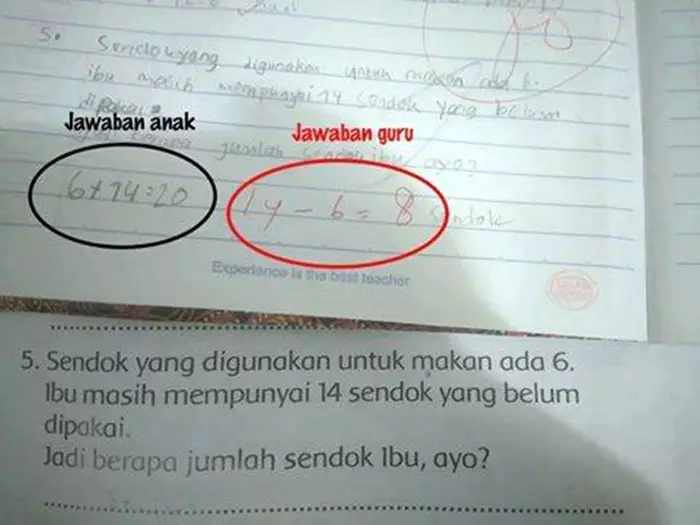 5. Sendok yang digunakan untuk makan ada 6.
ibu masih mempunyai 14 sendok yang belum
dipakai.
Jawaban anak
Jawaban guru
berapa jumlah sendok ibu, ayo?
6+14=20
14 - 6 = 8 sendok
Experience is the best teacher
5. Sendok yang digunakan untuk makan ada 6.
Ibu masih mempunyai 14 sendok yang belum
dipakai.
Jadi berapa jumlah sendok Ibu, ayo?